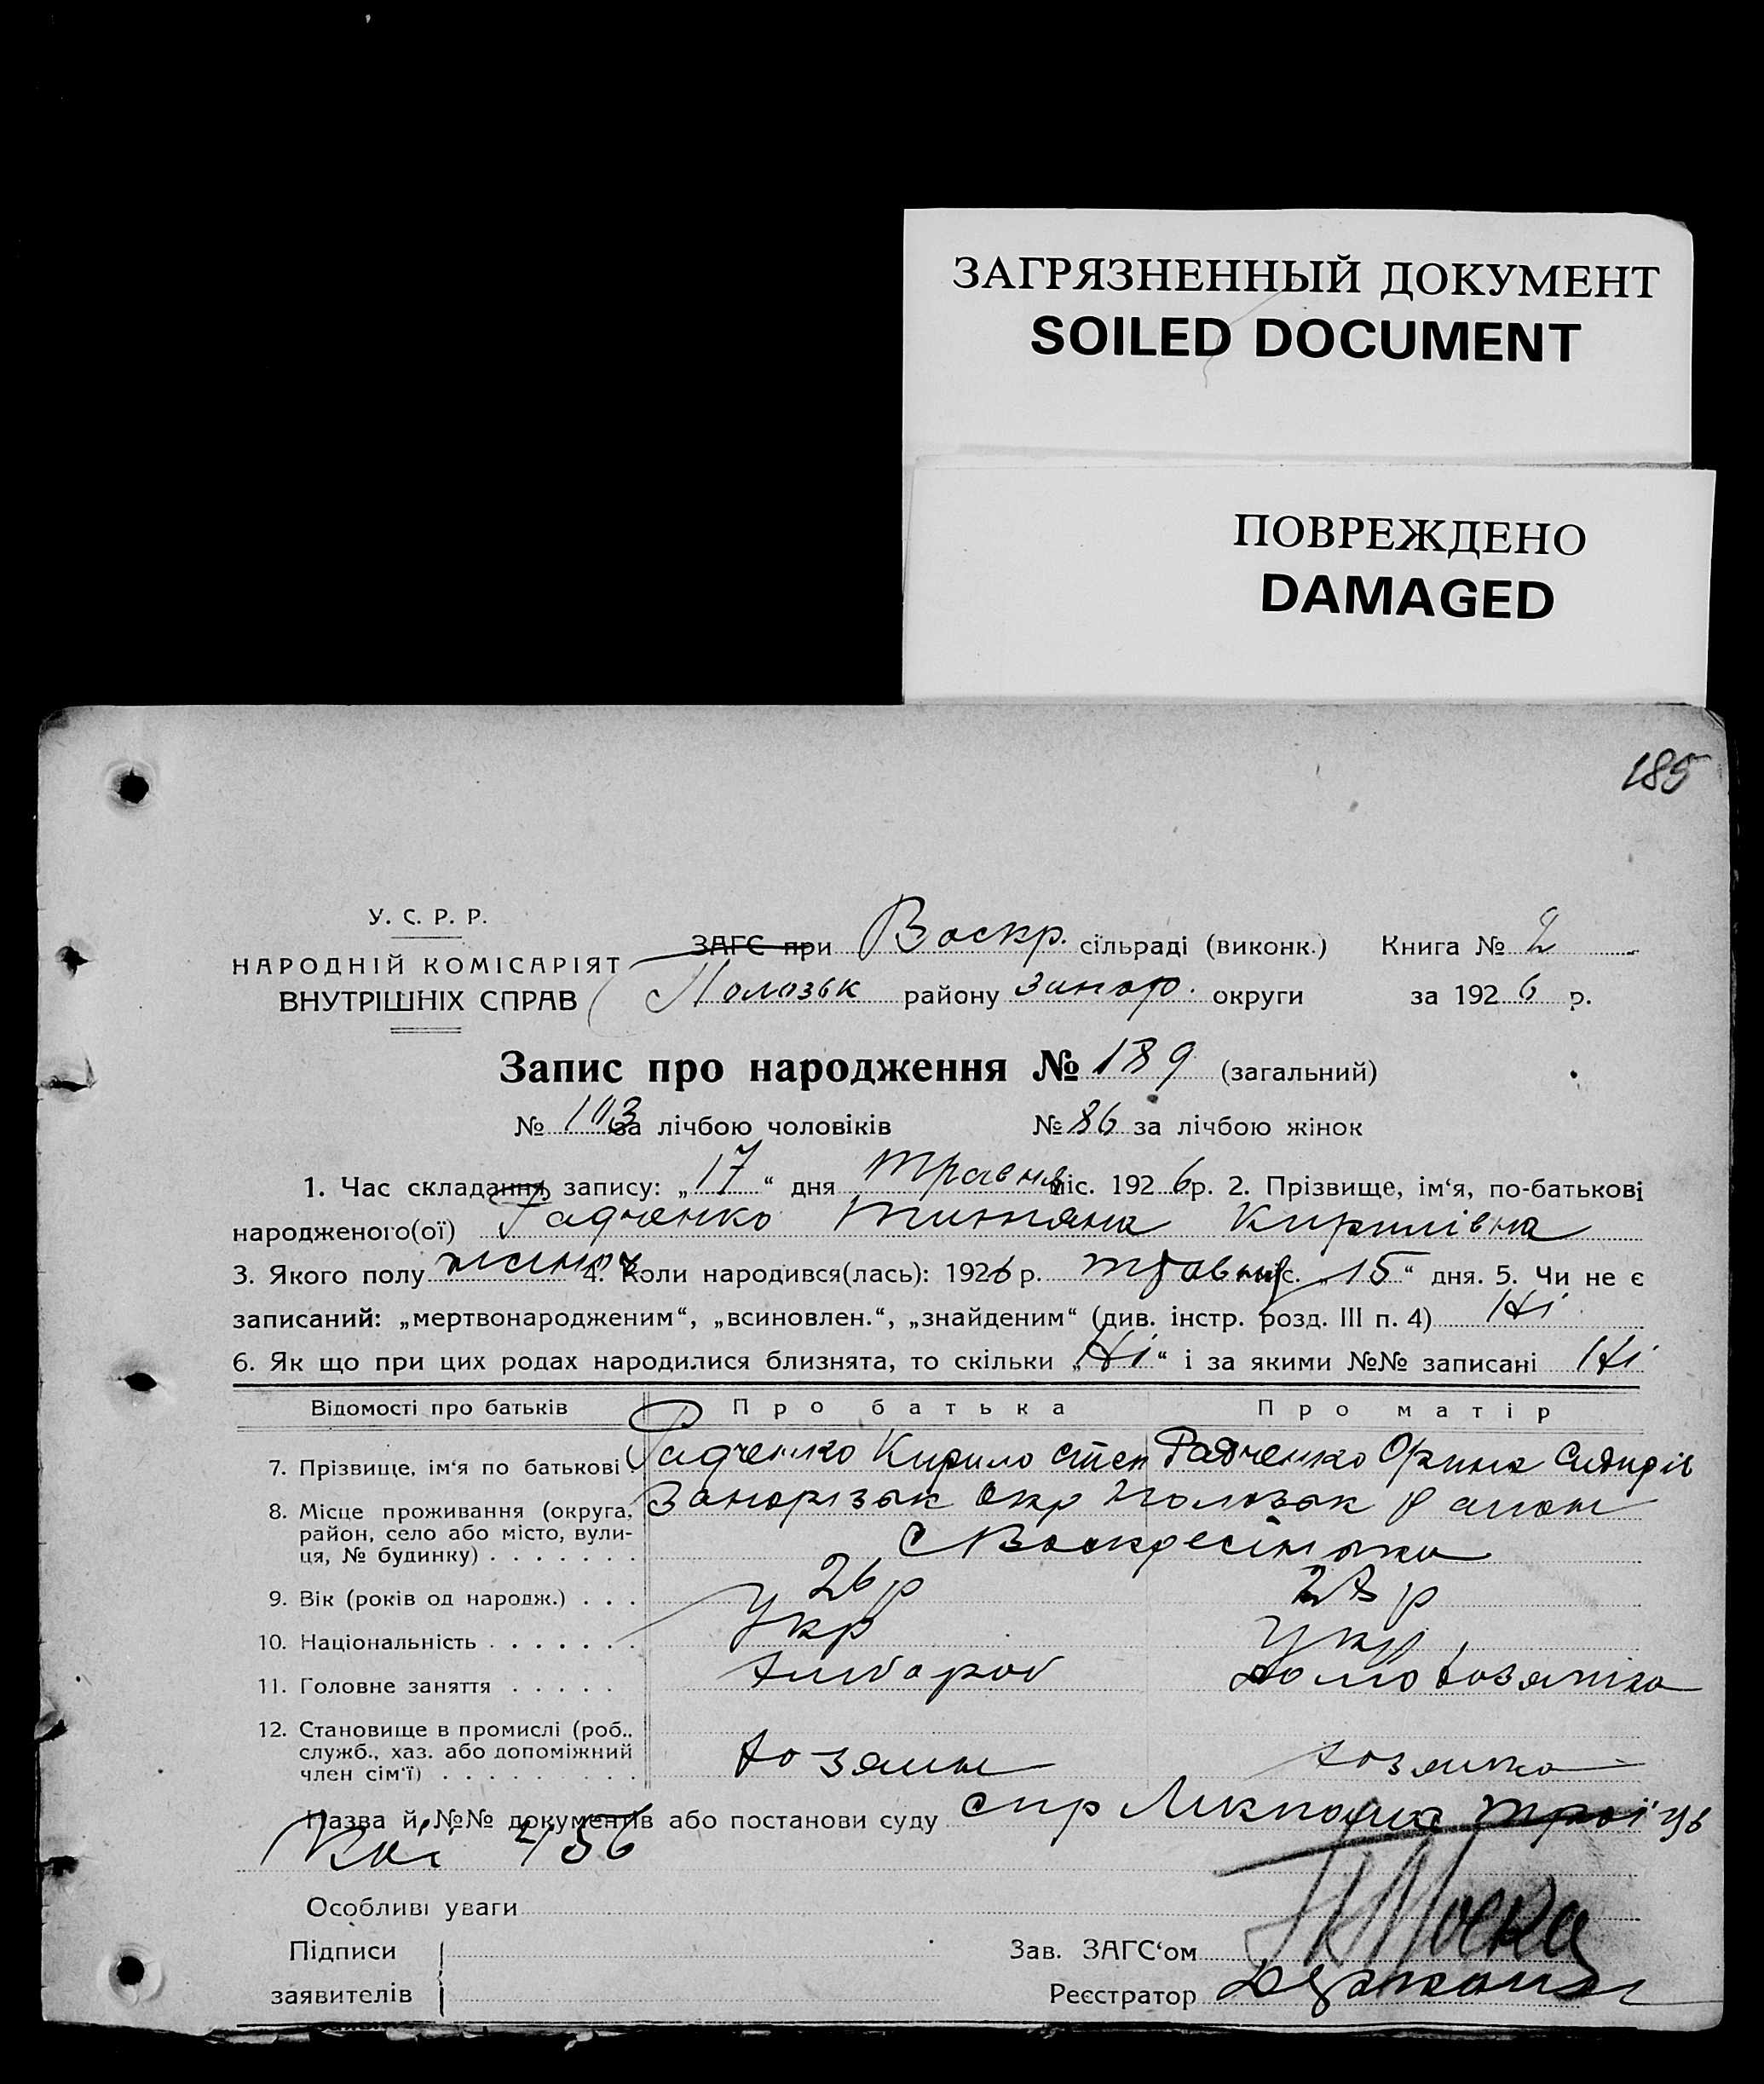 ЗАГРЯЗНЕННЫЙ ДОКУМЕНТ
SOILED DOCUMENT
ПОВРЕЖДЕНО
DAMAGED
185
У. С. Р. Р.
НАРОДНІЙ КОМІСАРІЯТ
ВНУТРІШНІХ СПРАВ
ЗАГС при Воскр. сільраді (виконк.) Книга № 2
Полозьк району Запор. округи за 1926 р.
Запис про народження № 189 (загальний)
№ 103 за лічбою чоловіків № 86 за лічбою жінок
1. Час складання запису: „17“ дня травня міс. 1926 р. 2. Прізвище, ім‘я, по-батькові
народженого(ої) Радченко Титяна Кирилівна
3. Якого полу жіноч 4. Коли народився(лась): 1926 р. травня міс. „15“ дня. 5. Чи не є
записаний: „мертвонародженим“, „всиновлен.“, „знайденим“ (див. інстр. розд. III п. 4) Ні
6. Як що при цих родах народилися близнята, то скільки „Ні“ і за якими №№ записані Ні
Відомості про батьків Про батька Про матір
7. Прізвище, ім‘я по батькові Радченко Кирило Степ Радченко Орина
8. Місце проживання (округа, район, село або місто, вулиця, № будинку) Запорізьк Окр Пологзьк район
с Воскресінька
9. Вік (років од народж.) 26 р 23 р
10. Національність Укр Укр
11. Головне заняття хлібороб домохозяйка
12. Становище в промислі (роб., служб., хаз. або допоміжний член сім‘ї) хозяин хозяйка
Назва й №№ документів або постанови суду спр
Особливі уваги
Підписи
заявителів
Зав. ЗАГС‘ом
Реєстратор